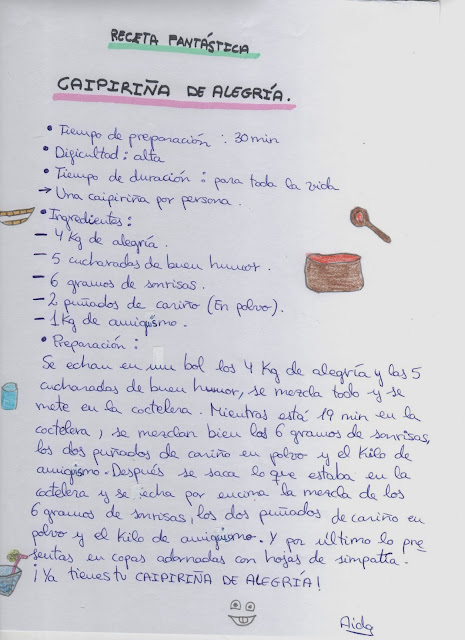 RECETA FANTÁSTICA
CAIPIRIÑA DE ALEGRÍA.
• Tiempo de preparación : 30 min
• Dificultad : alta
• Tiempo de duración : para toda la vida
→ Una caipiriña por persona.
• Ingredientes :
– 4 Kg de alegría.
– 5 cucharadas de buen humor.
– 6 gramos de sonrisas.
– 2 puñados de cariño (En polvo).
– 1 Kg de amiguismo.
• Preparación :
Se echan en un bol los 4 Kg de alegría y las 5
cucharadas de buen humor, se mezcla todo y se
mete en la coctelera. Mientras está 19 min en la
coctelera, se mezclan bien los 6 gramos de sonrisas,
los dos puñados de cariño en polvo y el kilo de
amiguismo. Después se saca lo que estaba en la
coctelera y se echa por encima la mezcla de los
6 gramos de sonrisas, los dos puñados de cariño en
polvo y el kilo de amiguismo. Y por último lo pre
sentas en copas adornadas con hojas de simpatía.
¡Ya tienes tu CAIPIRIÑA DE ALEGRÍA!
Aida